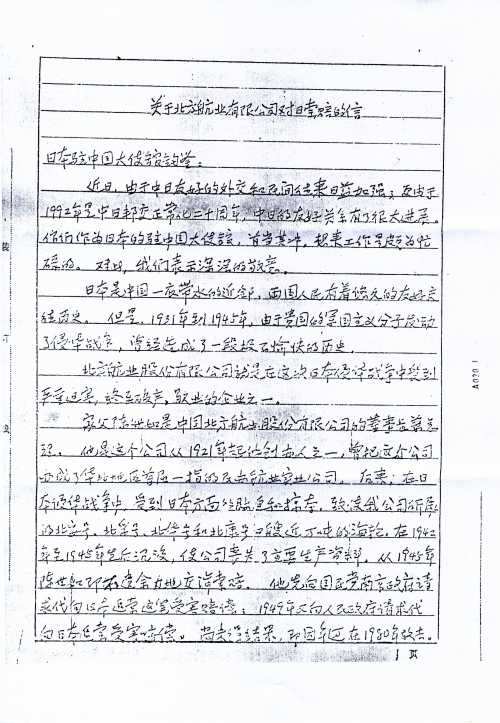 关于北方航业有限公司对日索赔的信
日本驻中国大使馆钧鉴:
近日,由于中日友好的外交和民间往来日益加强,及由于
1992年是中日邦交正常化二十周年,中日的友好关系有了很大进展。
你们作为日本的驻中国大使馆,首当其冲,想来工作是颇为忙
碌的。对此,我们表示深深的敬意。
日本是中国一衣带水的近邻,两国人民有着悠久的友好交
往历史。但是,1931年到1945年,由于贵国的军国主义分子发动
了侵华战争,曾经造成了一段极不愉快的历史。
北方航业股份有限公司就是在这次日本侵华战争中受到
严重迫害,终至破产、歇业的企业之一。
家父陈世如是中国北方航业股份有限公司的董事长兼总
经理。他是这个公司从1921年起的创办人之一,曾把这个公司
办成了华北地区首屈一指的民办航业公司。后来,在日
本侵华战争中,受到日本方面的胁迫和掠夺,致使我公司所属
的北安号、北华号和北康号 近万吨的海轮,在1942
年至1945年先后沉没,使公司丧失了主要生产资料。从1945年
陈世如即不遗余力地 索赔。他先向国民党南京政府请
求代向日本追索这笔受害赔偿;1949年又向人民政府请求代
向日本追索受害赔偿。尚未得结果,即因年迈在1980年故去。
1 页
装
订
A020